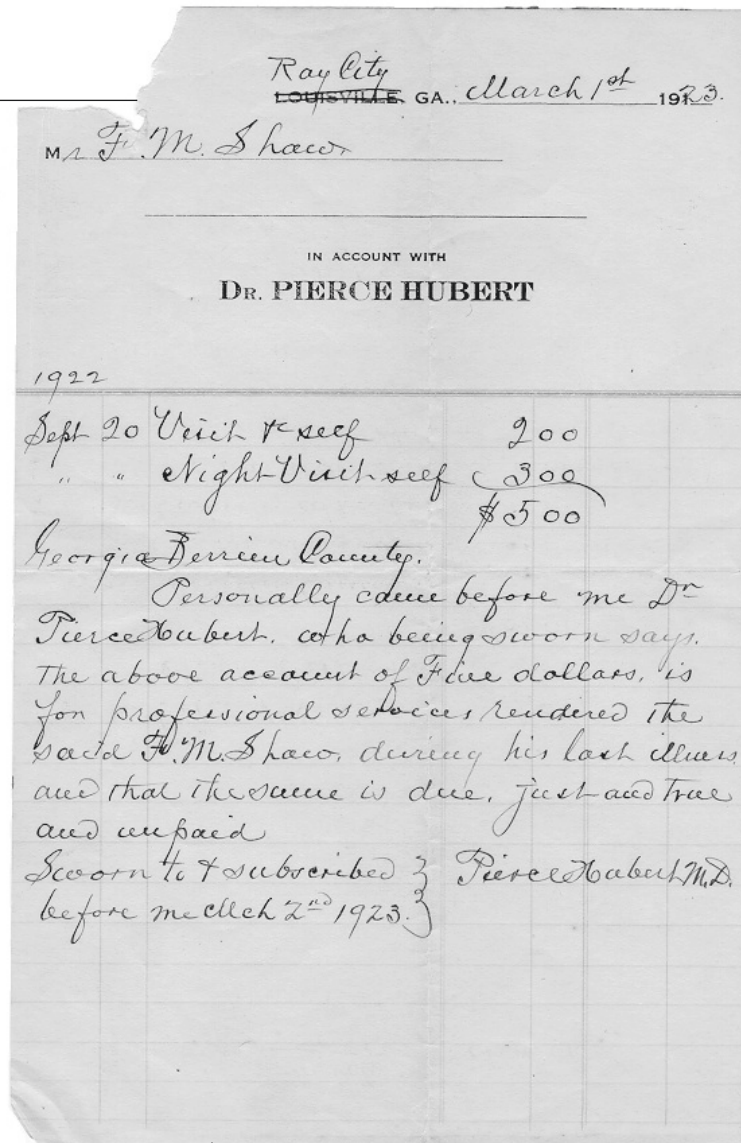 Ray City
LOUISVILLE, GA., March 1st 1923.
Mr F. M. Shaw
IN ACCOUNT WITH
DR. PIERCE HUBERT
1922
Sept 20 Visit & self 2 00
" " Night Visit self 3 00
$ 5 00
Georgia Berrien County.
Personally came before me Dr
Pierce Hubert. who being sworn says.
The above account of Five dollars, is
for professional services rendered the
said F. M. Shaw, during his last illness
and that the same is due, just and true
and unpaid
Sworn to & subscribed } Pierce Hubert M.D.
before me Mch 2nd 1923. }